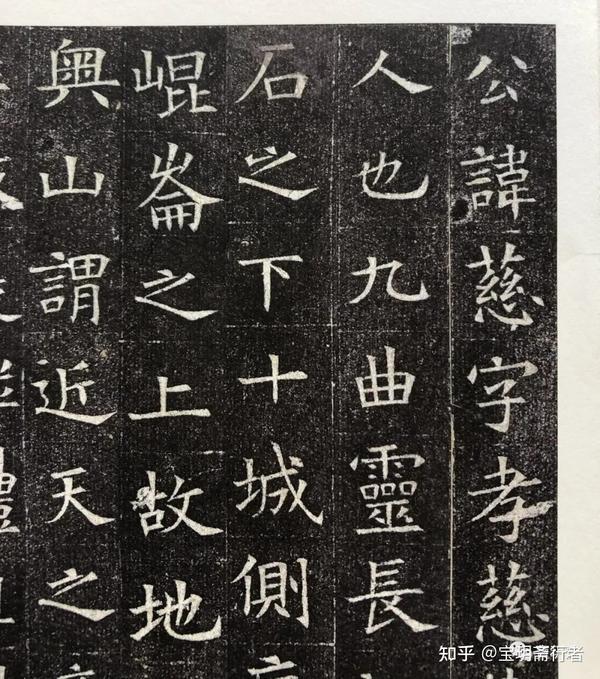 公諱慈字孝慈
人也九曲靈長
石之下十城側
崐崙之上故地
奧山謂近天之
知乎 @宝玥斋行者